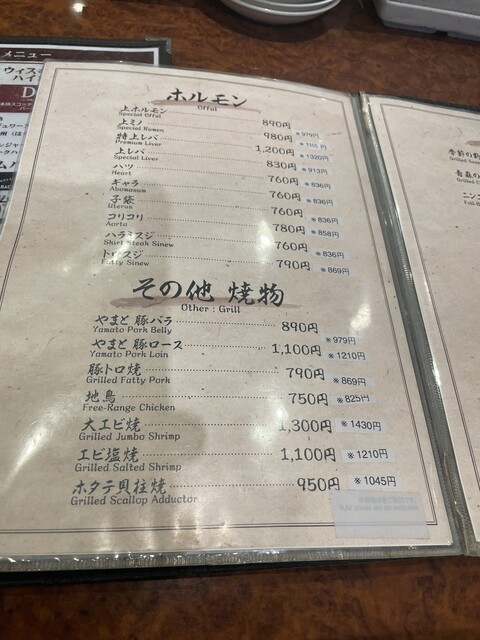 メニュー
ホルモン
Offal
上ホルモン 890円 ※979円
Special Offal
上ミノ 980円
Special Rumen
特上レバ 1,200円 ※1320円
Premium Liver
上レバ 830円 ※913円
Special Liver
ハツ 760円 ※836円
Heart
ギャラ 760円 ※836円
Abomasum
子袋 760円 ※836円
Uterus
コリコリ 780円 ※858円
Aorta
ハラミスジ 760円 ※836円
Skirt Steak Sinew
トロスジ 790円 ※869円
Fatty Sinew
その他 焼物
Other : Grill
やまと 豚バラ 890円 ※979円
Yamato Pork Belly
やまと 豚ロース 1,100円 ※1210円
Yamato Pork Loin
豚トロ焼 790円 ※869円
Grilled Fatty Pork
地鳥 750円 ※825円
Free-Range Chicken
大エビ焼 1,300円 ※1430円
Grilled Jumbo Shrimp
エビ塩焼 1,100円 ※1210円
Grilled Salted Shrimp
ホタテ貝柱焼 950円 ※1045円
Grilled Scallop Adductor